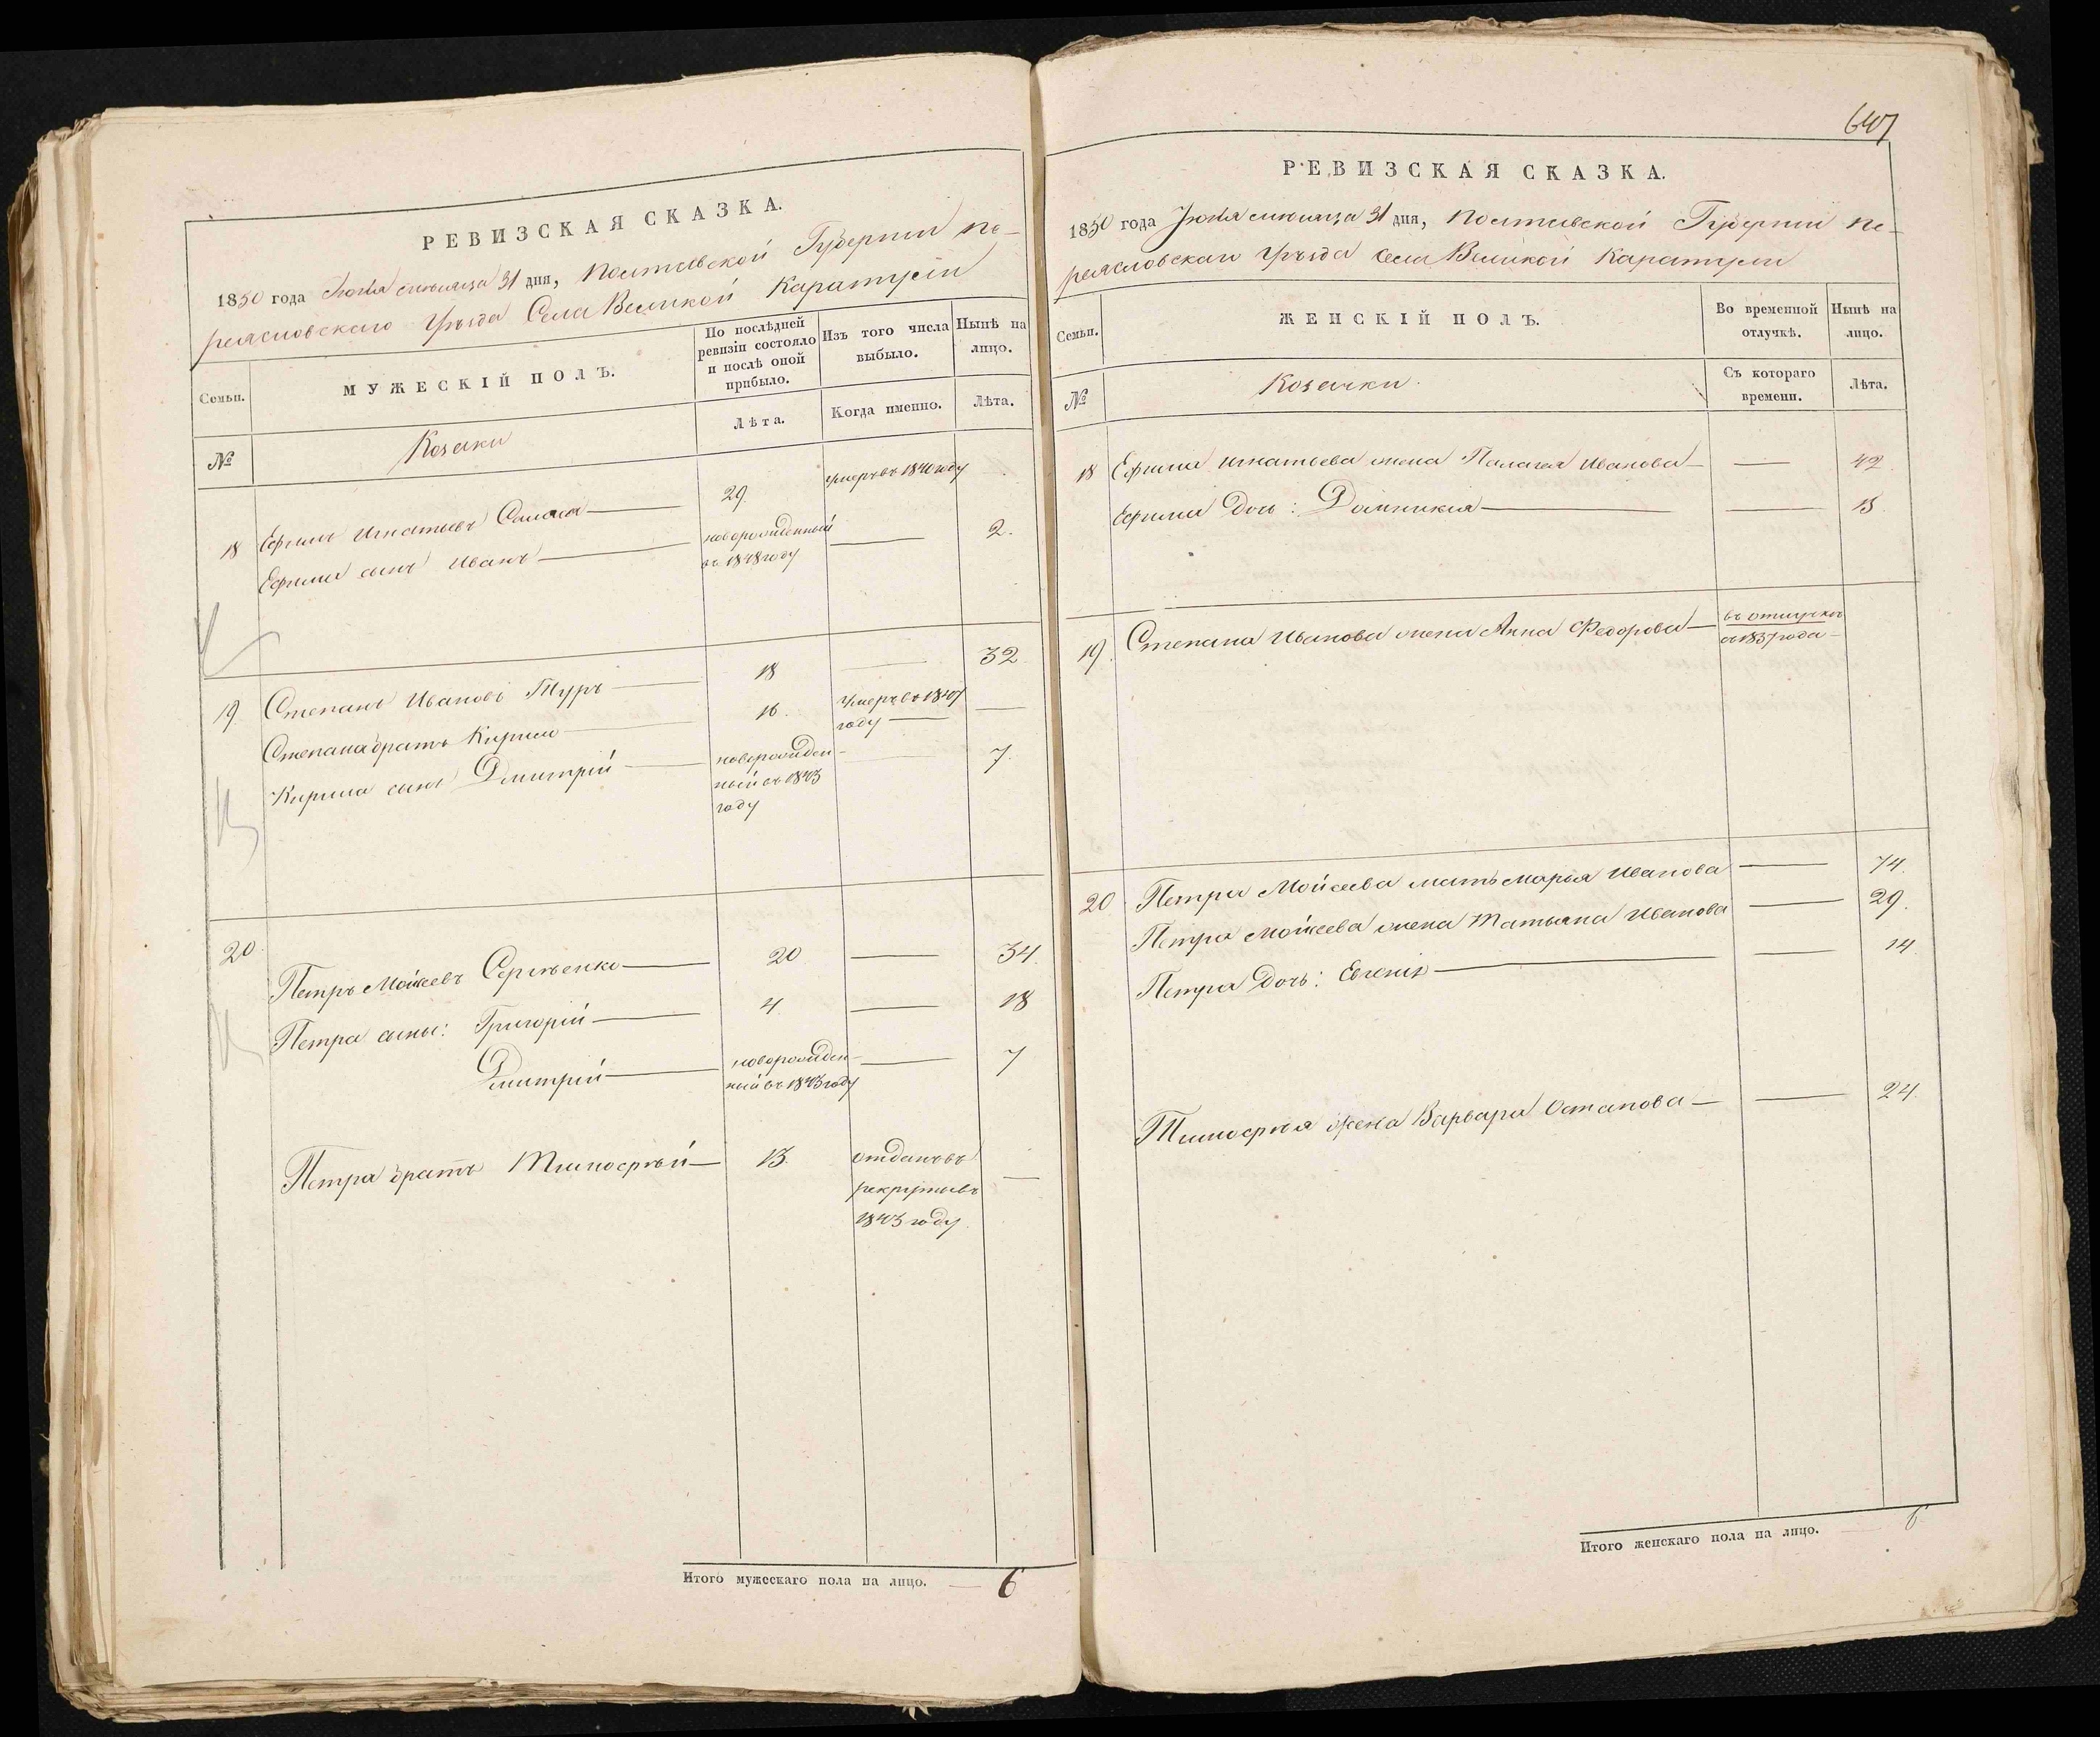 РЕВИЗСКАЯ СКАЗКА.
1850 года Июля месяца 31 дня, Полтавской Губернии Пе-
реясловскаго Уѣзда Села Великой Каратули
Семьи.
МУЖЕСКІЙ ПОЛЪ.
По послѣдней ревизіи состояло и послѣ оной прибыло.
Изъ того числа выбыло.
Нынѣ на лицо.
№
Козаки
Лѣта.
Когда именно.
Лѣта.
18 Ефимъ Игнатьевъ 29. умеръ въ 1840 году
Ефима сынъ Иванъ новорожденный въ 1848 году 2.
19. Степанъ Ивановъ Туръ 18 32
Степана братъ Кирило 16. умеръ въ году
Кирила сынъ Дмитрій новорожден-
ный въ 1843
году 7.
20. Петръ Мойсеевъ Сергѣенко 20 34.
Петра сыны: Григорій 4 18
Дмитрій новорожден-
ный въ 1843 году 7
Петра братъ Тимофѣй 13. отданъ въ
рекруты въ
1843 году.
Итого мужескаго пола на лицо. 6
647
РЕВИЗСКАЯ СКАЗКА.
1850 года Июля месяца 31 дня, Полтавской Губернии Пе-
реясловскаго Уѣзда Села Великой Каратули
Семьи.
ЖЕНСКІЙ ПОЛЪ.
Во временной отлучкѣ.
Нынѣ на лицо.
№
Козачки.
Съ котораго времени.
Лѣта.
18 Ефима Игнатьева жена Палагея Иванова 42.
Ефима Дочь: Домникия 13.
19. Степана Иванова жена Анна Федорова въ отлучкѣ
съ 1837 года
20 Петра Мойсеева мать Марья Иванова 74.
Петра Мойсеева жена Татьяна Иванова 29.
Петра Дочь: Евгенія 14
Тимофѣя жена Варвара Остапова 24.
Итого женскаго пола на лицо. 6